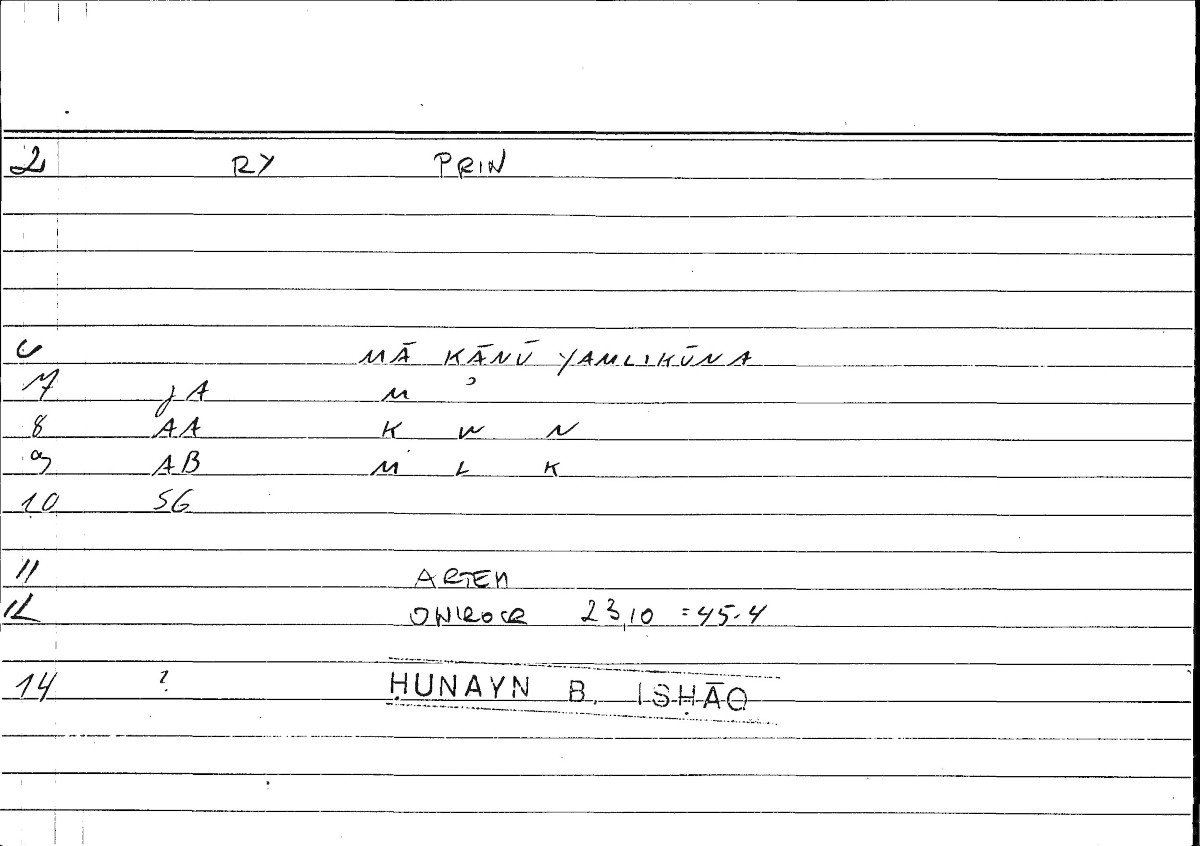 2 RY PRIN
6 MĀ KĀNŪ YAMLIKŪNA
7 JA M ʾ
8 AA K W N
9 AB M L K
10 SG
11 ARTEM
12 ONIROCR 23,10 = 45.4
14 ? ḤUNAYN B. ISḤĀQ